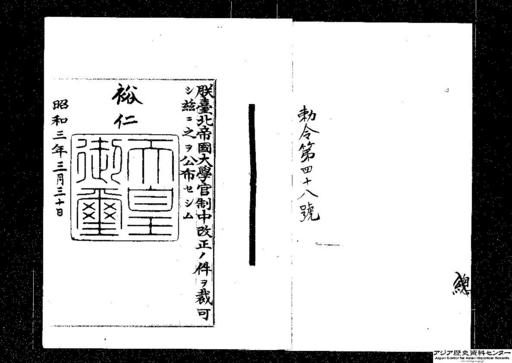 勅令第四十八號
朕臺北帝國大學官制中改正ノ件ヲ裁可
シ玆ニ之ヲ公布セシム
裕仁
天皇
御璽
昭和三年三月三十日
アジア歴史資料センター
Japan Center for Asian Historical Records